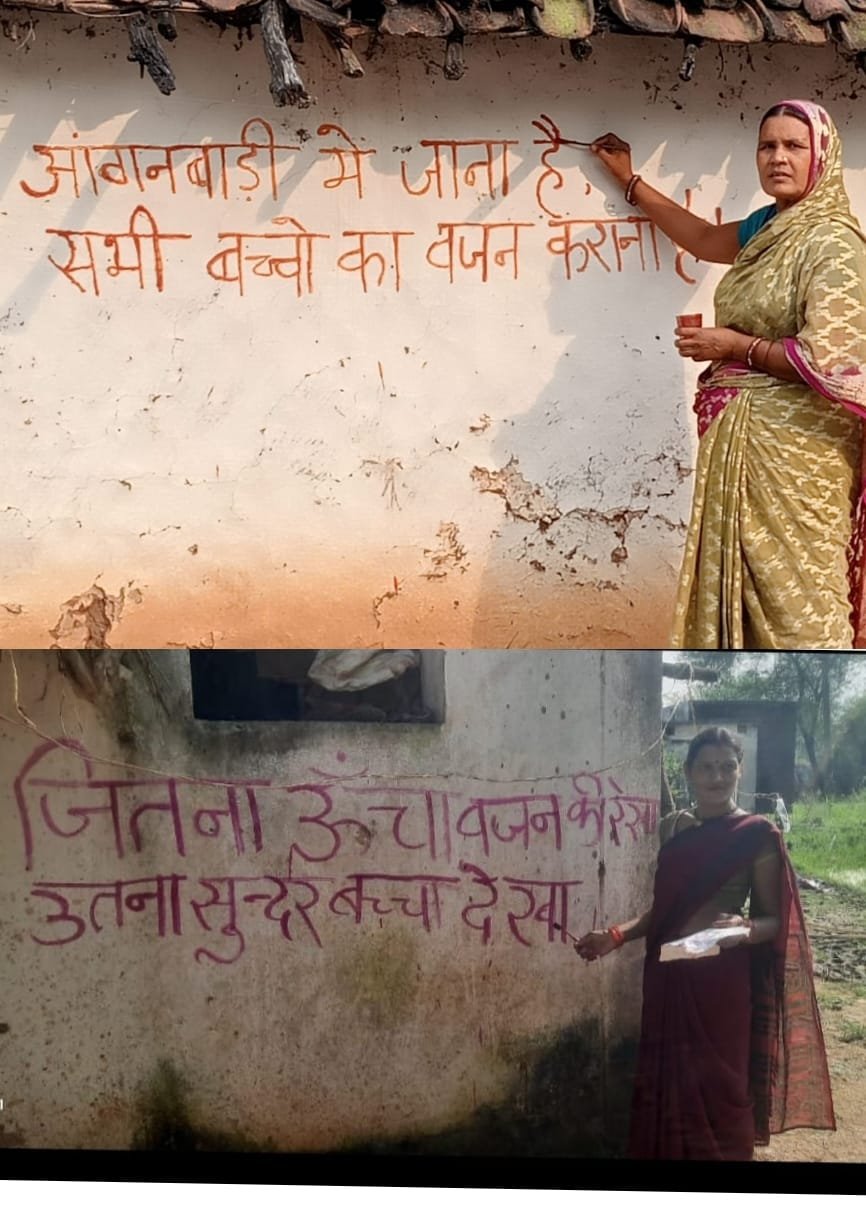 आंगनबाड़ी मे जाना है,
सभी बच्चो का वजन कराना है।
जितना ऊँचा वजन की रेखा
उतना सुन्दर बच्चा देखा